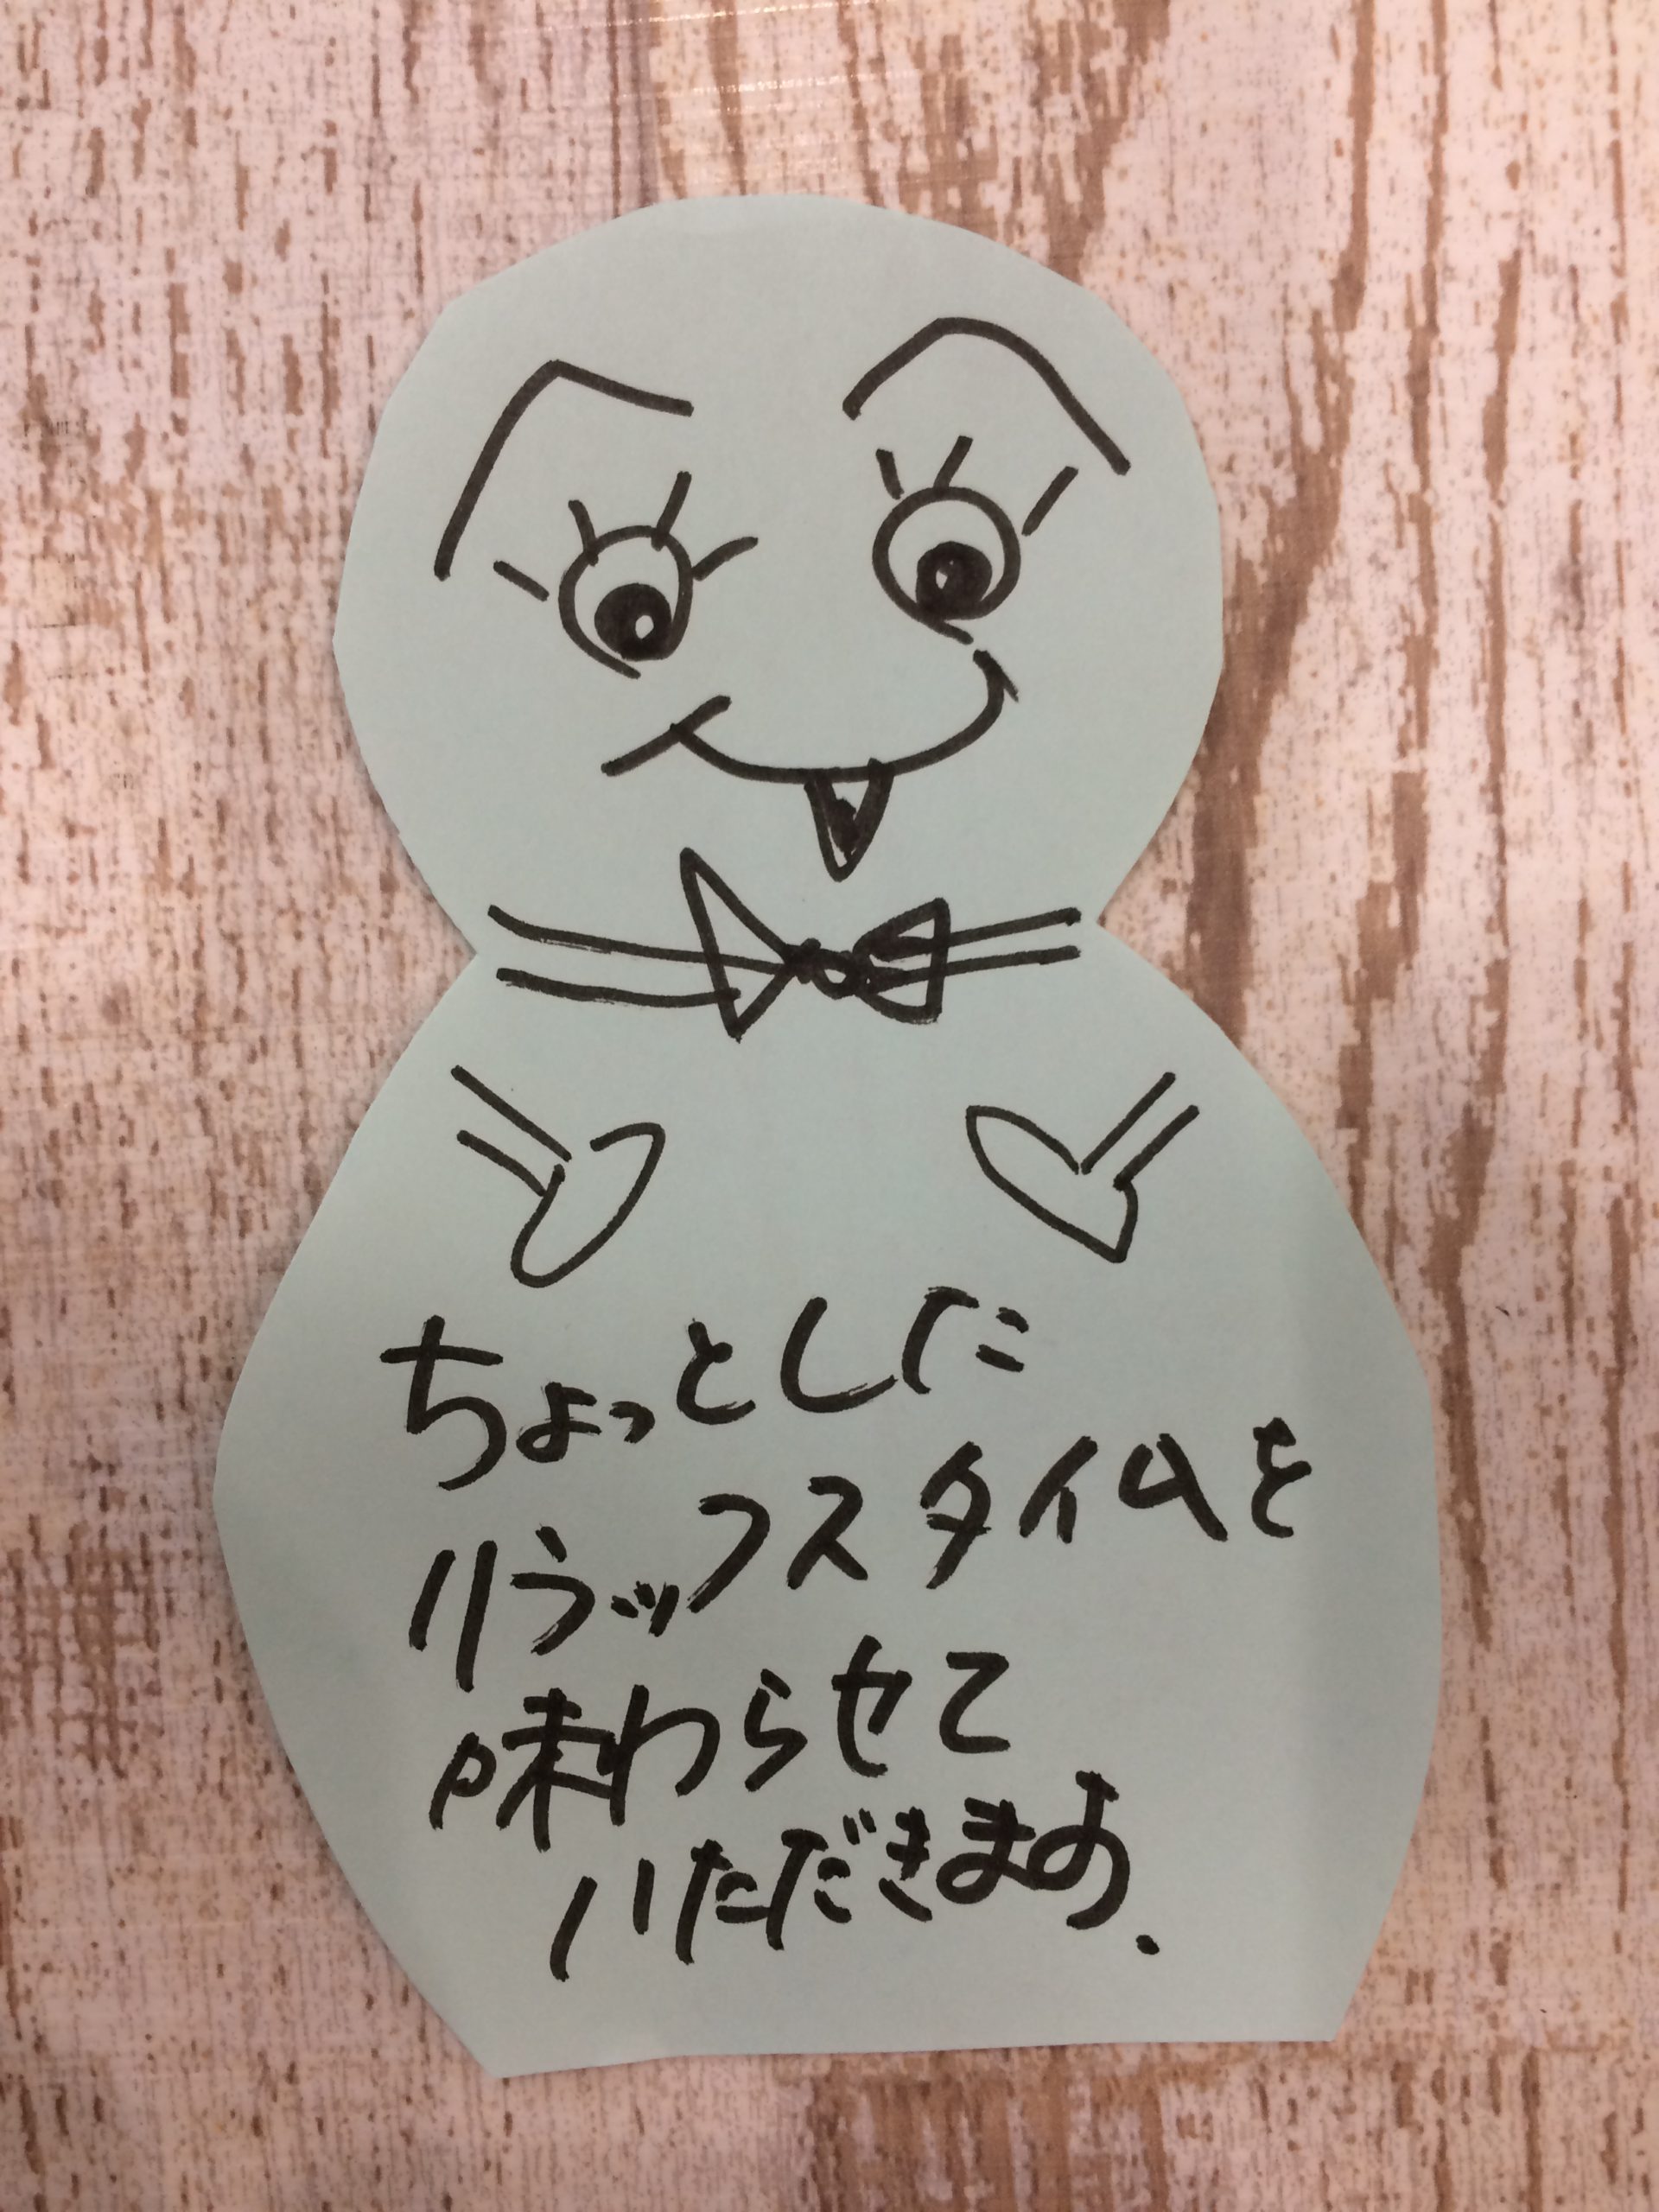 ちょっとした
リラックスタイムを
味わらせて
いただきます.